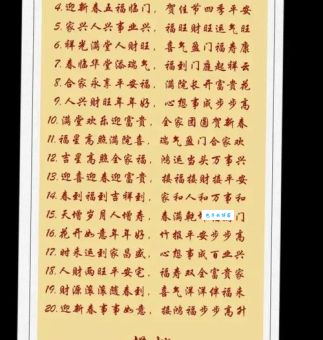 4.迎新春五福临门， 贺佳节四季平安
5.家兴人兴事业兴， 福旺财旺运气旺
6.祥光满堂人财旺， 喜气盈门福寿康
7.春临华堂添瑞气， 福到门庭起祥云
8.合家永享平安福， 满院长开富贵花
9.人兴财旺年年好， 心想事成步步高
10.满堂欢乐迎富贵， 全家团圆贺新春
11.福星高照满院喜， 瑞气盈门合家欢
12.吉星高照全家福， 鸿运当头万事兴
13.迎喜迎春迎富贵， 接福接财接平安
14.春到福到吉祥到， 家和人和万事和
15.天增岁月人增寿， 春满乾 门
16.花开如意年年好， 竹报平安步步高
17.时来运到家昌盛， 心想事成百业兴
18.人财两旺平安宅， 福寿双全富贵家
19.财源滚滚随春到， 喜气洋洋伴福来
20.迎新春事事如意， 接鸿福步步高升